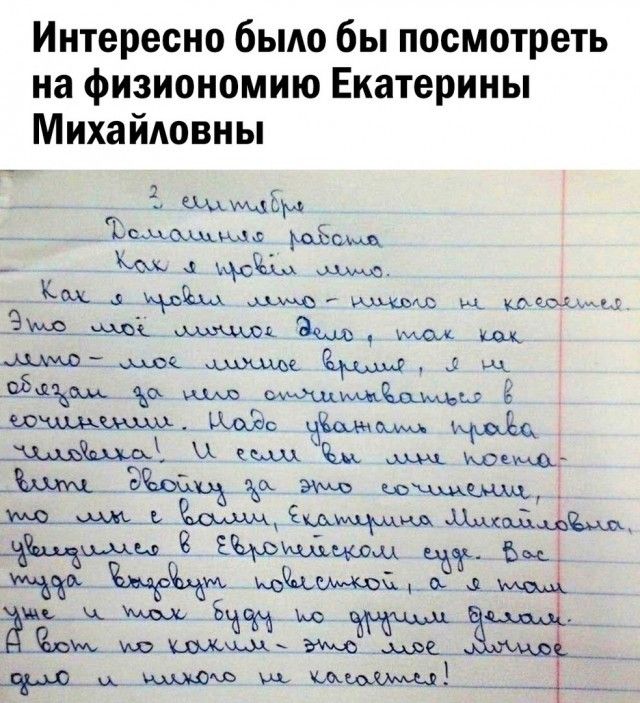 Интересно было бы посмотреть
на физиономию Екатерины
Михайловны
3 сентября
Домашняя работа
Как я провёл лето.
Как я провел лето - никого не касается.
Это моё личное дело, так как
лето - мое личное время, я не
обязан за него отчитываться в
сочинении. Надо уважать права
человека! И если вы мне поста-
вите двойку за это сочинение,
то мы с вами, Екатерина Михайловна,
увидимся в Европейском суде. Вас
туда вызовут повесткой, а я там
уже и так буду по другим делам.
А вот по каким - это мое личное
дело и никого не касается!